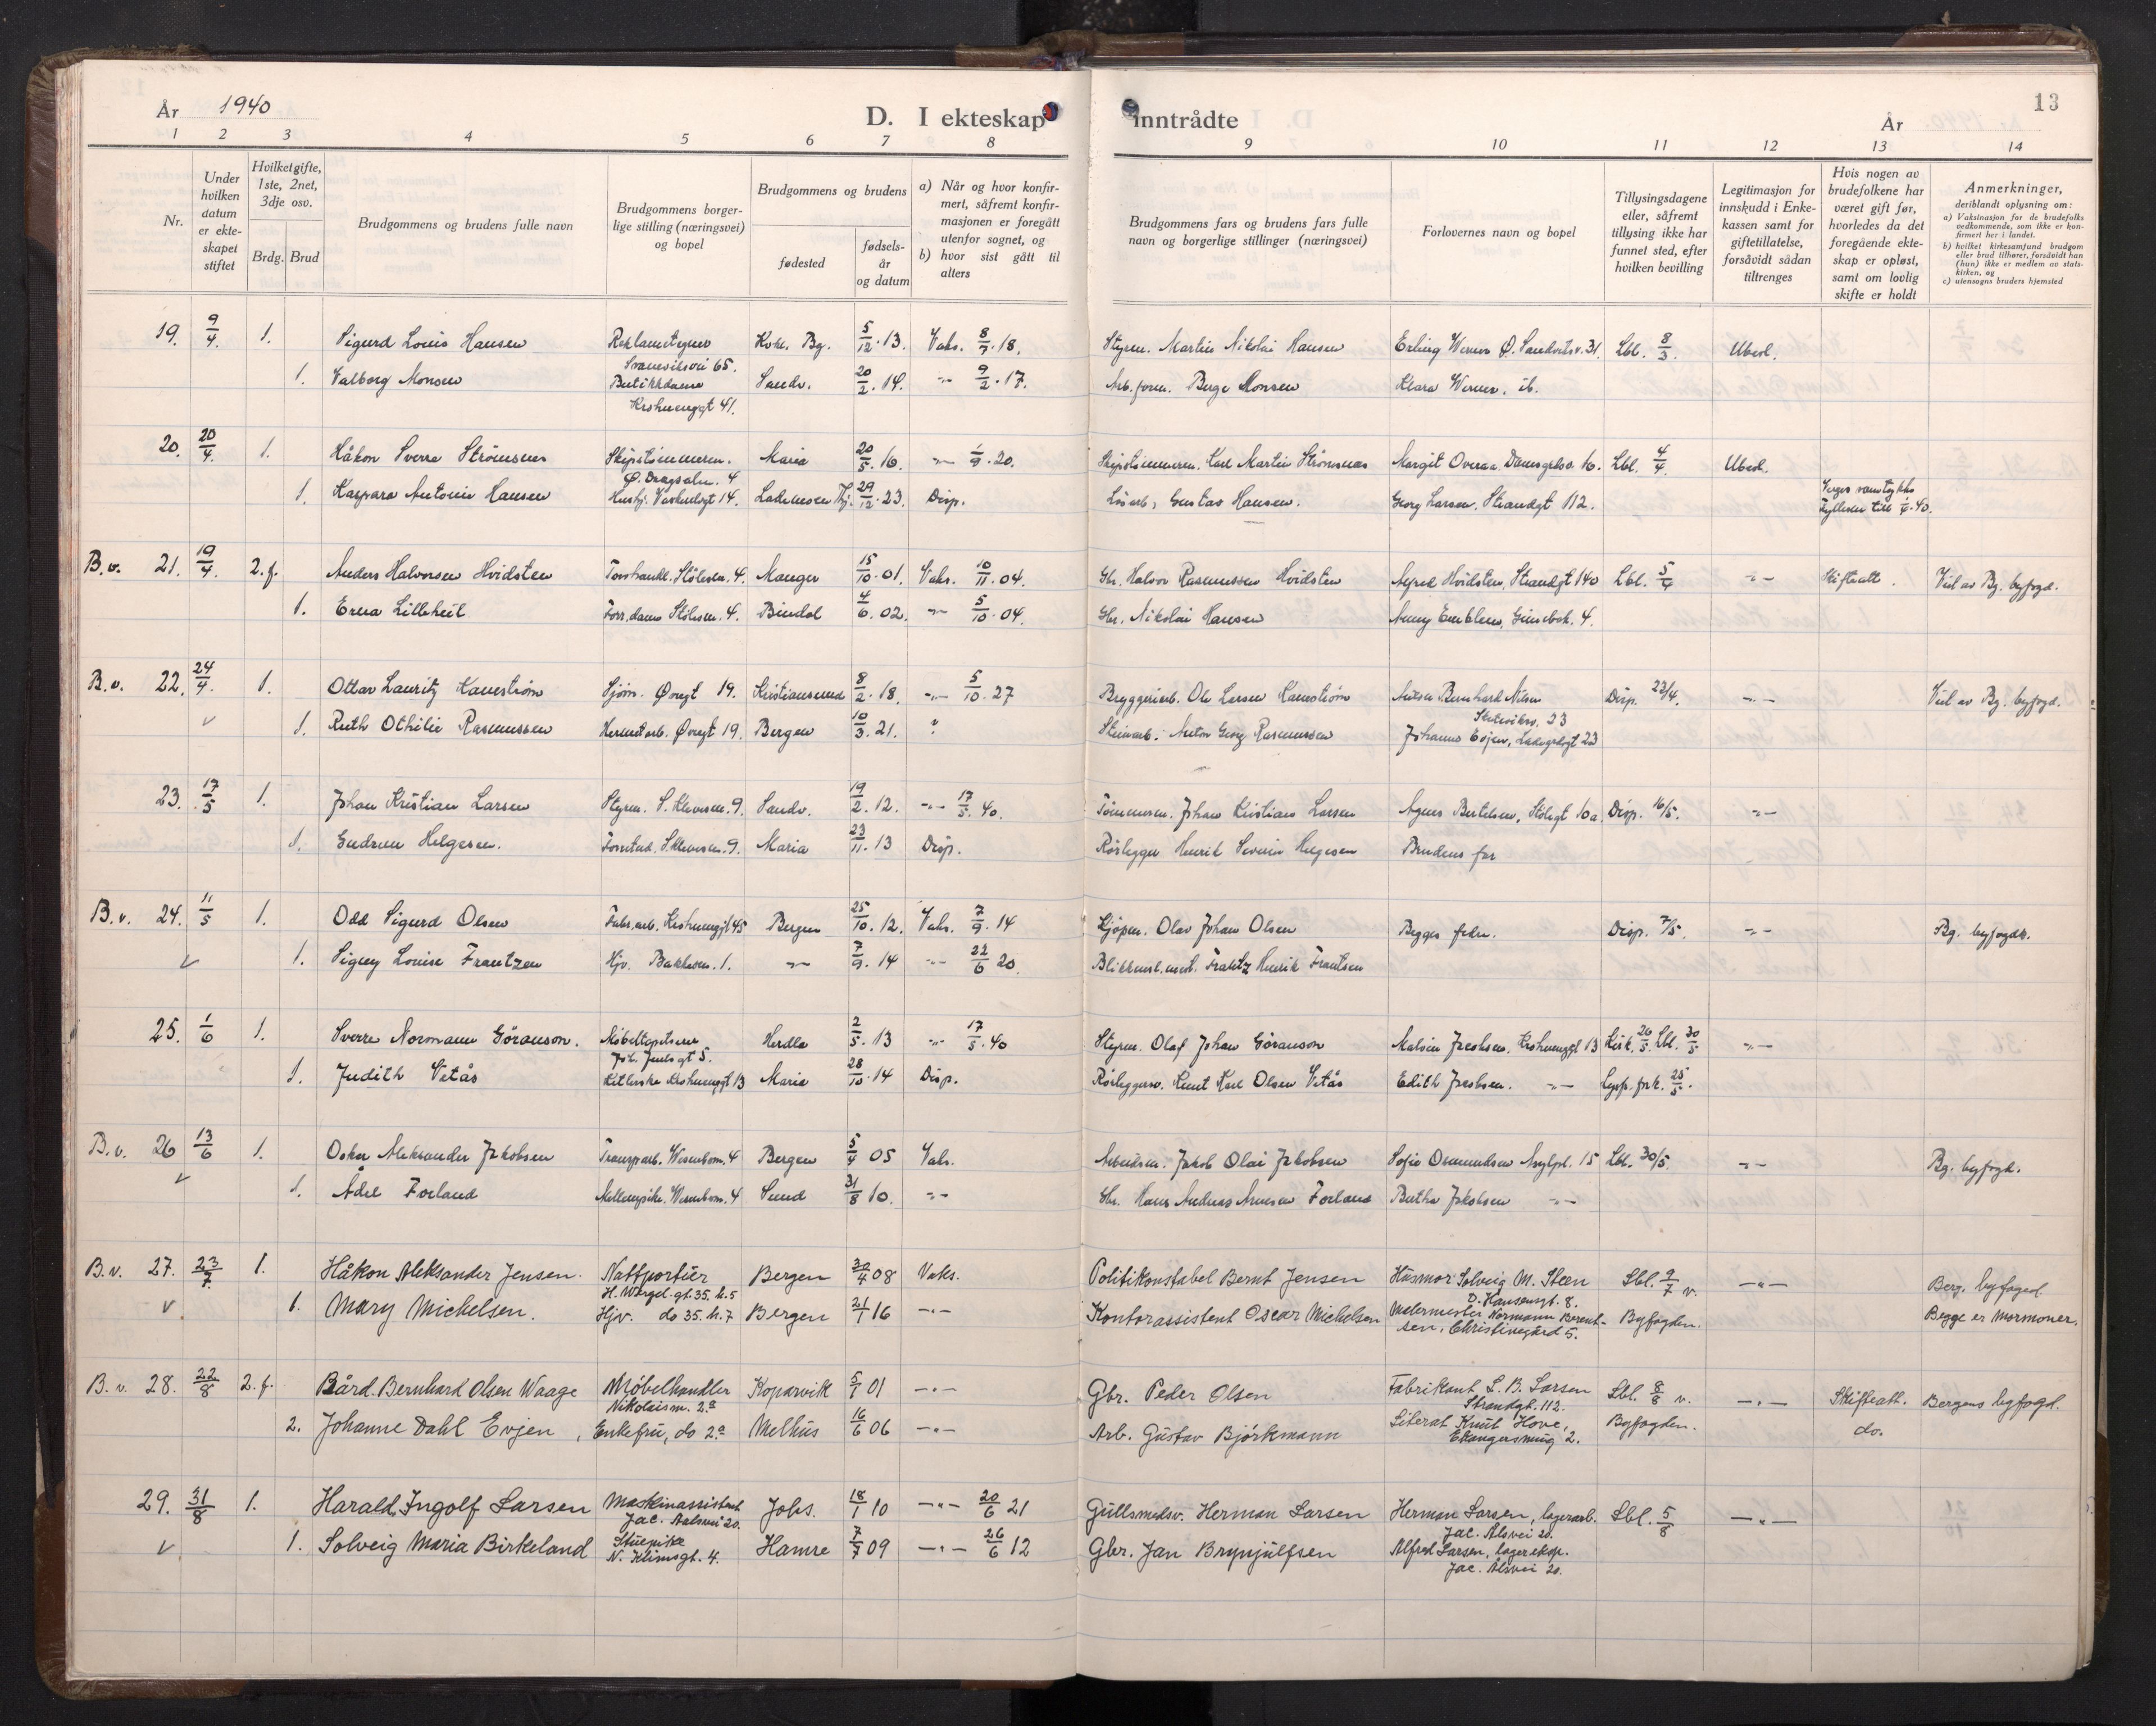 År 1940
D. I ekteskap inntrådte
År
13
1 2 3 4 5 6 7 8 9 10 11 12 13 14
Nr.
Under hvilken datum er ekteskapet stiftet
Hvilket gifte, 1ste, 2net, 3dje osv.
Brdg. Brud
Brudgommens og brudens fulle navn
Brudgommens borgerlige stilling (næringsvei) og bopel
Brudgommens og brudens
fødested
fødselsår og datum
a) Når og hvor konfirmert, såfremt konfirmasjonen er foregått utenfor sognet, og
b) hvor sist gått til alters
Brudgommens fars og brudens fars fulle navn og borgerlige stillinger (næringsvei)
Forlovernes navn og bopel
Tillysingsdagene eller, såfremt tillysing ikke har funnet sted, efter hvilken bevilling
Legitimasjon for innskudd i Enkekassen samt for giftetillatelse, forsåvidt sådan tiltrenges
Hvis nogen av brudefolkene har været gift før, hvorledes da det foregående ekteskap er opløst, samt om lovlig skifte er holdt
Anmerkninger, deriblandt oplysning om:
a) Vaksinasjon for de brudefolks vedkommende, som ikke er konfirmert her i landet.
b) hvilket kirkesamfund brudgom eller brud tilhører, forsåvidt han (hun) ikke er medlem av statskirken, og
c) utensogns bruders hjemsted
19. 9/4. 1. Sigurd Louis Hansen Reklametegner Kork. Bg. 5/12.13. Vaks. 8/7.18. Styrm. Martin Nikolai Hansen Erling Werner Ø. Sandvilsv. 31. Lbl. 8/3. Ubesl.
Svanevilsvei 65.
1. Valborg Monsen Butikkdame Sandv. 20/2.14. -"- 9/2.17. Arb.form. Berge Monsen Klara Werner. ib.
41.
20. 20/4. 1. Håkon Sverre Strömsnes Skipstømmerm. Maria 20/5.16. -"- 1/9.20. Skipstømmerm. Karl Martin Strömsnes Margit Overaa, Damsgårdsv. 16. Lbl. 4/4. Ubesl.
4
1. Kaspara Antonie Hansen 14. 29/12.23. Disp. Løsarb. Gustav Hansen. Georg Larsen. Strandgt 112. Verges samtykke
40.
B.v. 21. 19/4. 2.f. Anders Halvorsen Hvidsten 4. Manger 15/10.01. Vaks. 10/11.04. Gbr. Halvor Rasmussen Hvidsten Alfred Hvidsten, Strandgt 140 Lbl. 5/4 -"- Skifteatt. Viel av Bg. byfogd.
1. Erna Lilleheil Forr.dame 4. Bindal 4/6.02. -"- 5/10.04. Gbr. Nikolai Hansen Anny Emblem, 4.
B.v. 22. 24/4. 1. Ottar Lauritz Kanestrøm Sjøm. Øvregt 19. Kristiansund 8/2.18. -"- 5/10.27 Bryggeriarb. Ole Larsen Kanestrøm Bernhard Nilsen Disp. 22/4. -"- Viel av Bg. byfogd.
23
1. Ruth Othilie Rasmussen Hermetarb. Øvregt 19. Bergen 10/3.21. " Steinarb. Anton Georg Rasmussen Johannes Evjen, Ladegårdsgt 23
23. 17/5 1. Johan Kristian Larsen Styrm. 9. Sandv. 19/2.12. -"- 17/5.40. Tømmerm. Johan Kristian Larsen Agnes Bertelsen, Stölegt 10a Disp. 16/5. -"-
1. Gudrun Helgesen. 9. Maria 23/11.13 Disp. Rörlegger Henrik Severin Helgesen Brudens far
B.v. 24. 11/5 1. Odd Sigurd Olsen Fabr.arb. 45 Bergen 25/10.12. Vaks. 7/9.14 Kjøpm. Olav Johan Olsen Begges fedre. Disp. 7/5. -"- Bg. byfogd.
1. Signy Louise Frantzen Hjv. 1. -"- 7/9.14 -"- 22/6 20. Blikkensl.mest. Frantz Henrik Frantsen
25. 1/6 1. Sverre Normann Göranson. Møbeltapetserer Herdla 2/5.13 -"- 17/5.40 Styrm. Olaf Johan Göranson Malvin Jacobsen. 13 Kirk. 26/5. Lbl. 30/5 -"-
5.
1. Judith Vetås 13 Maria 28/10.14 Disp. Rörleggerm. Knut Karl Olsen Vetås Edith Jacobsen. -"- 25/5.
B.v. 26 13/6 1. Oskar Aleksander Jakobsen Transp.arb. 4 Bergen 5/4 05 Vaks. Arbeidsm. Jakob Olai Jakobsen Sofie Osmundsen Asylpl. 15 Lbl. 30/5. -"- Bg. byfogd.
1. Ådel Forland 4 Sund 31/8 10. -"- Gbr. Hans Andreas Forland Bertha Jakobsen -"-
B.v. 27. 23/7 1. Håkon Aleksander Jensen. Nattportier Bergen 30/4 08 Vaks. Politikonstabel Bernt Jensen Husmor Solveig M. Steen Lbl. 9/7 v. -"- Berg. byfogd
H. Wergel.gt. 35. h.5 D. Hansensgt. 8.
1. Mary Michelsen. Hjv. do 35. h.7 Bergen 21/1 16 -"- Kontorassistent Oscar Michelsen Melermester Normann Berent- Byfogden. Begge er Mormoner.
sen, Christinegård 5.
B.v. 28. 22/8 2.f. Bård Bernhard Olsen Waage Møbelhandler Kopervik 5/1 01 -"- Gbr. Peder Olsen Fabrikant L. B. Larsen Lbl. 8/8 v. -"- Skifteatt. Bergens byfogd.
Nikolaism. 2a Strandgt. 112.
2. Johanne Dahl Evjen, Enkefru, do 2a Melhus 16/6 06 -"- Arb. Gustav Björkmann Literat Knut Hove, Byfogden. do.
Ekangersmug 2.
29. 31/8 1. Harald Ingolf Larsen Maskinassistent Johs. 18/1 10 -"- 20/6 21 Gullsmedsv. Herman Larsen Herman Larsen, lagerarb. Lbl. 5/8 -"-
Jac. Aalsvei 20. Jac. Alsvei 20.
1. Solveig Maria Birkeland Stuepike Hamre 7/7 09 -"- 26/6 12 Gbr. Jan Brynjulfsen Alfred Larsen, lagereksp.
N. Klimsgt. 4. Jac. Alsvei 20.